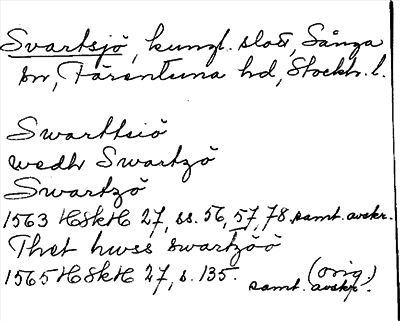 Svartsjö, kungl. slott, Sånga
sn, Färentuna hd, Stockh. l.
Swarttsiö
wedh Swartzö
Swartzö
1563 HSkH 27, ss. 56, 57, 78 samt. avskr.
Thet hwss swartzöö
1565 HSkH 27, s. 135. samt. avskr. (orig.)